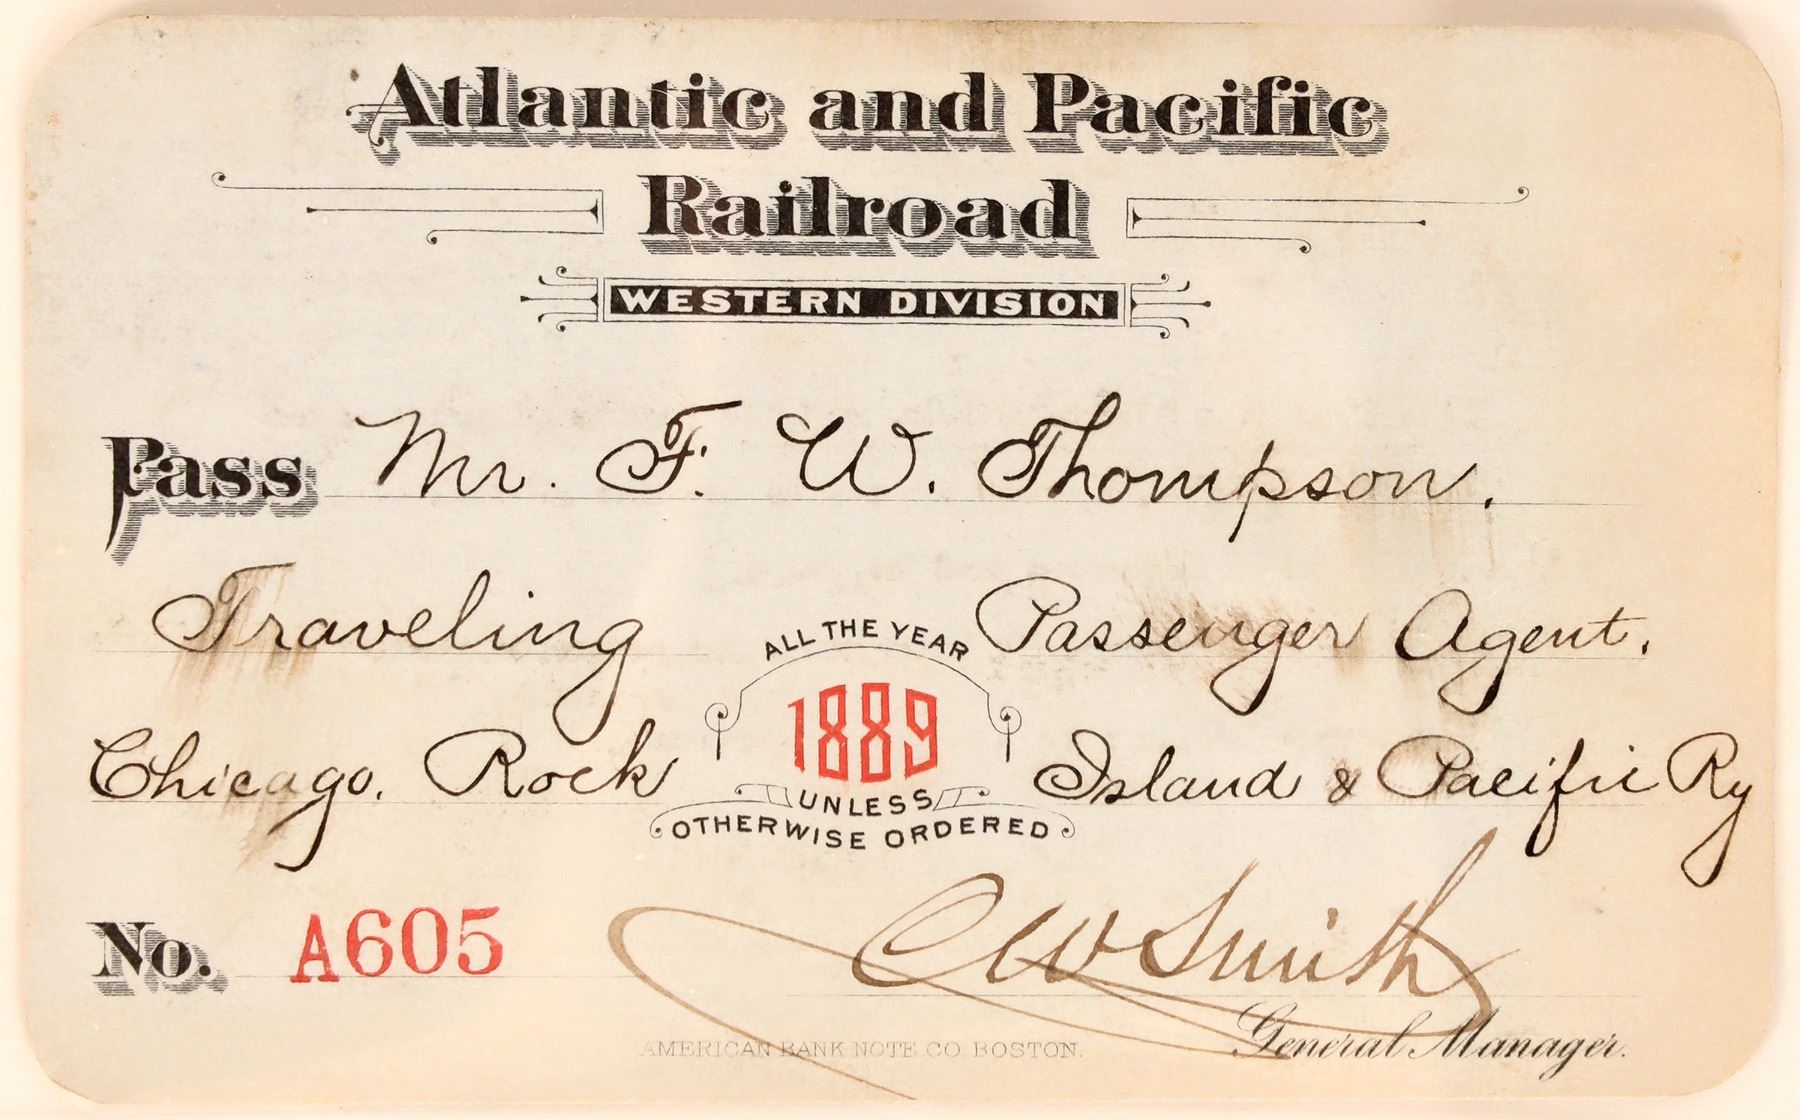 Atlantic and Pacific
Railroad
WESTERN DIVISION
Pass Mr. F. W. Thompson.
Traveling Passenger Agent.
ALL THE YEAR
1889
Chicago, Rock Island & Pacific Ry
UNLESS
OTHERWISE ORDERED
No. A605
C W Smith
General Manager.
AMERICAN BANK NOTE CO BOSTON.